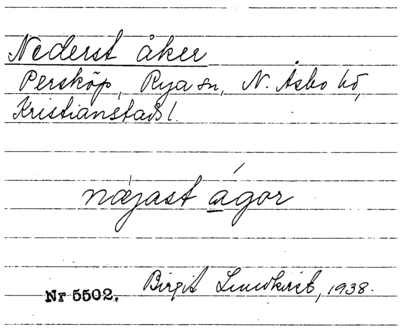 Nederst åker
Persköp, Rya sn, N. Åsbo hd,
Kristianstads l.
näjast ágor
Nr 5502. Birgit Lundkvist, 1938.